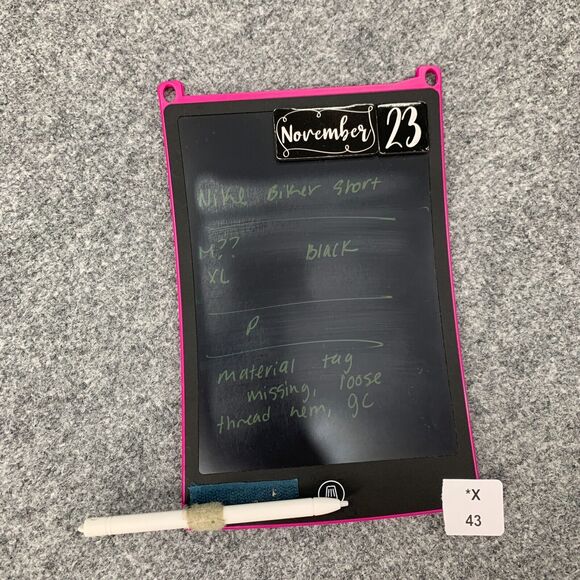 November 23
Nike Biker Short
M?? Black
XL
P
material tag
missing, loose
thread hem, gc
*X
43